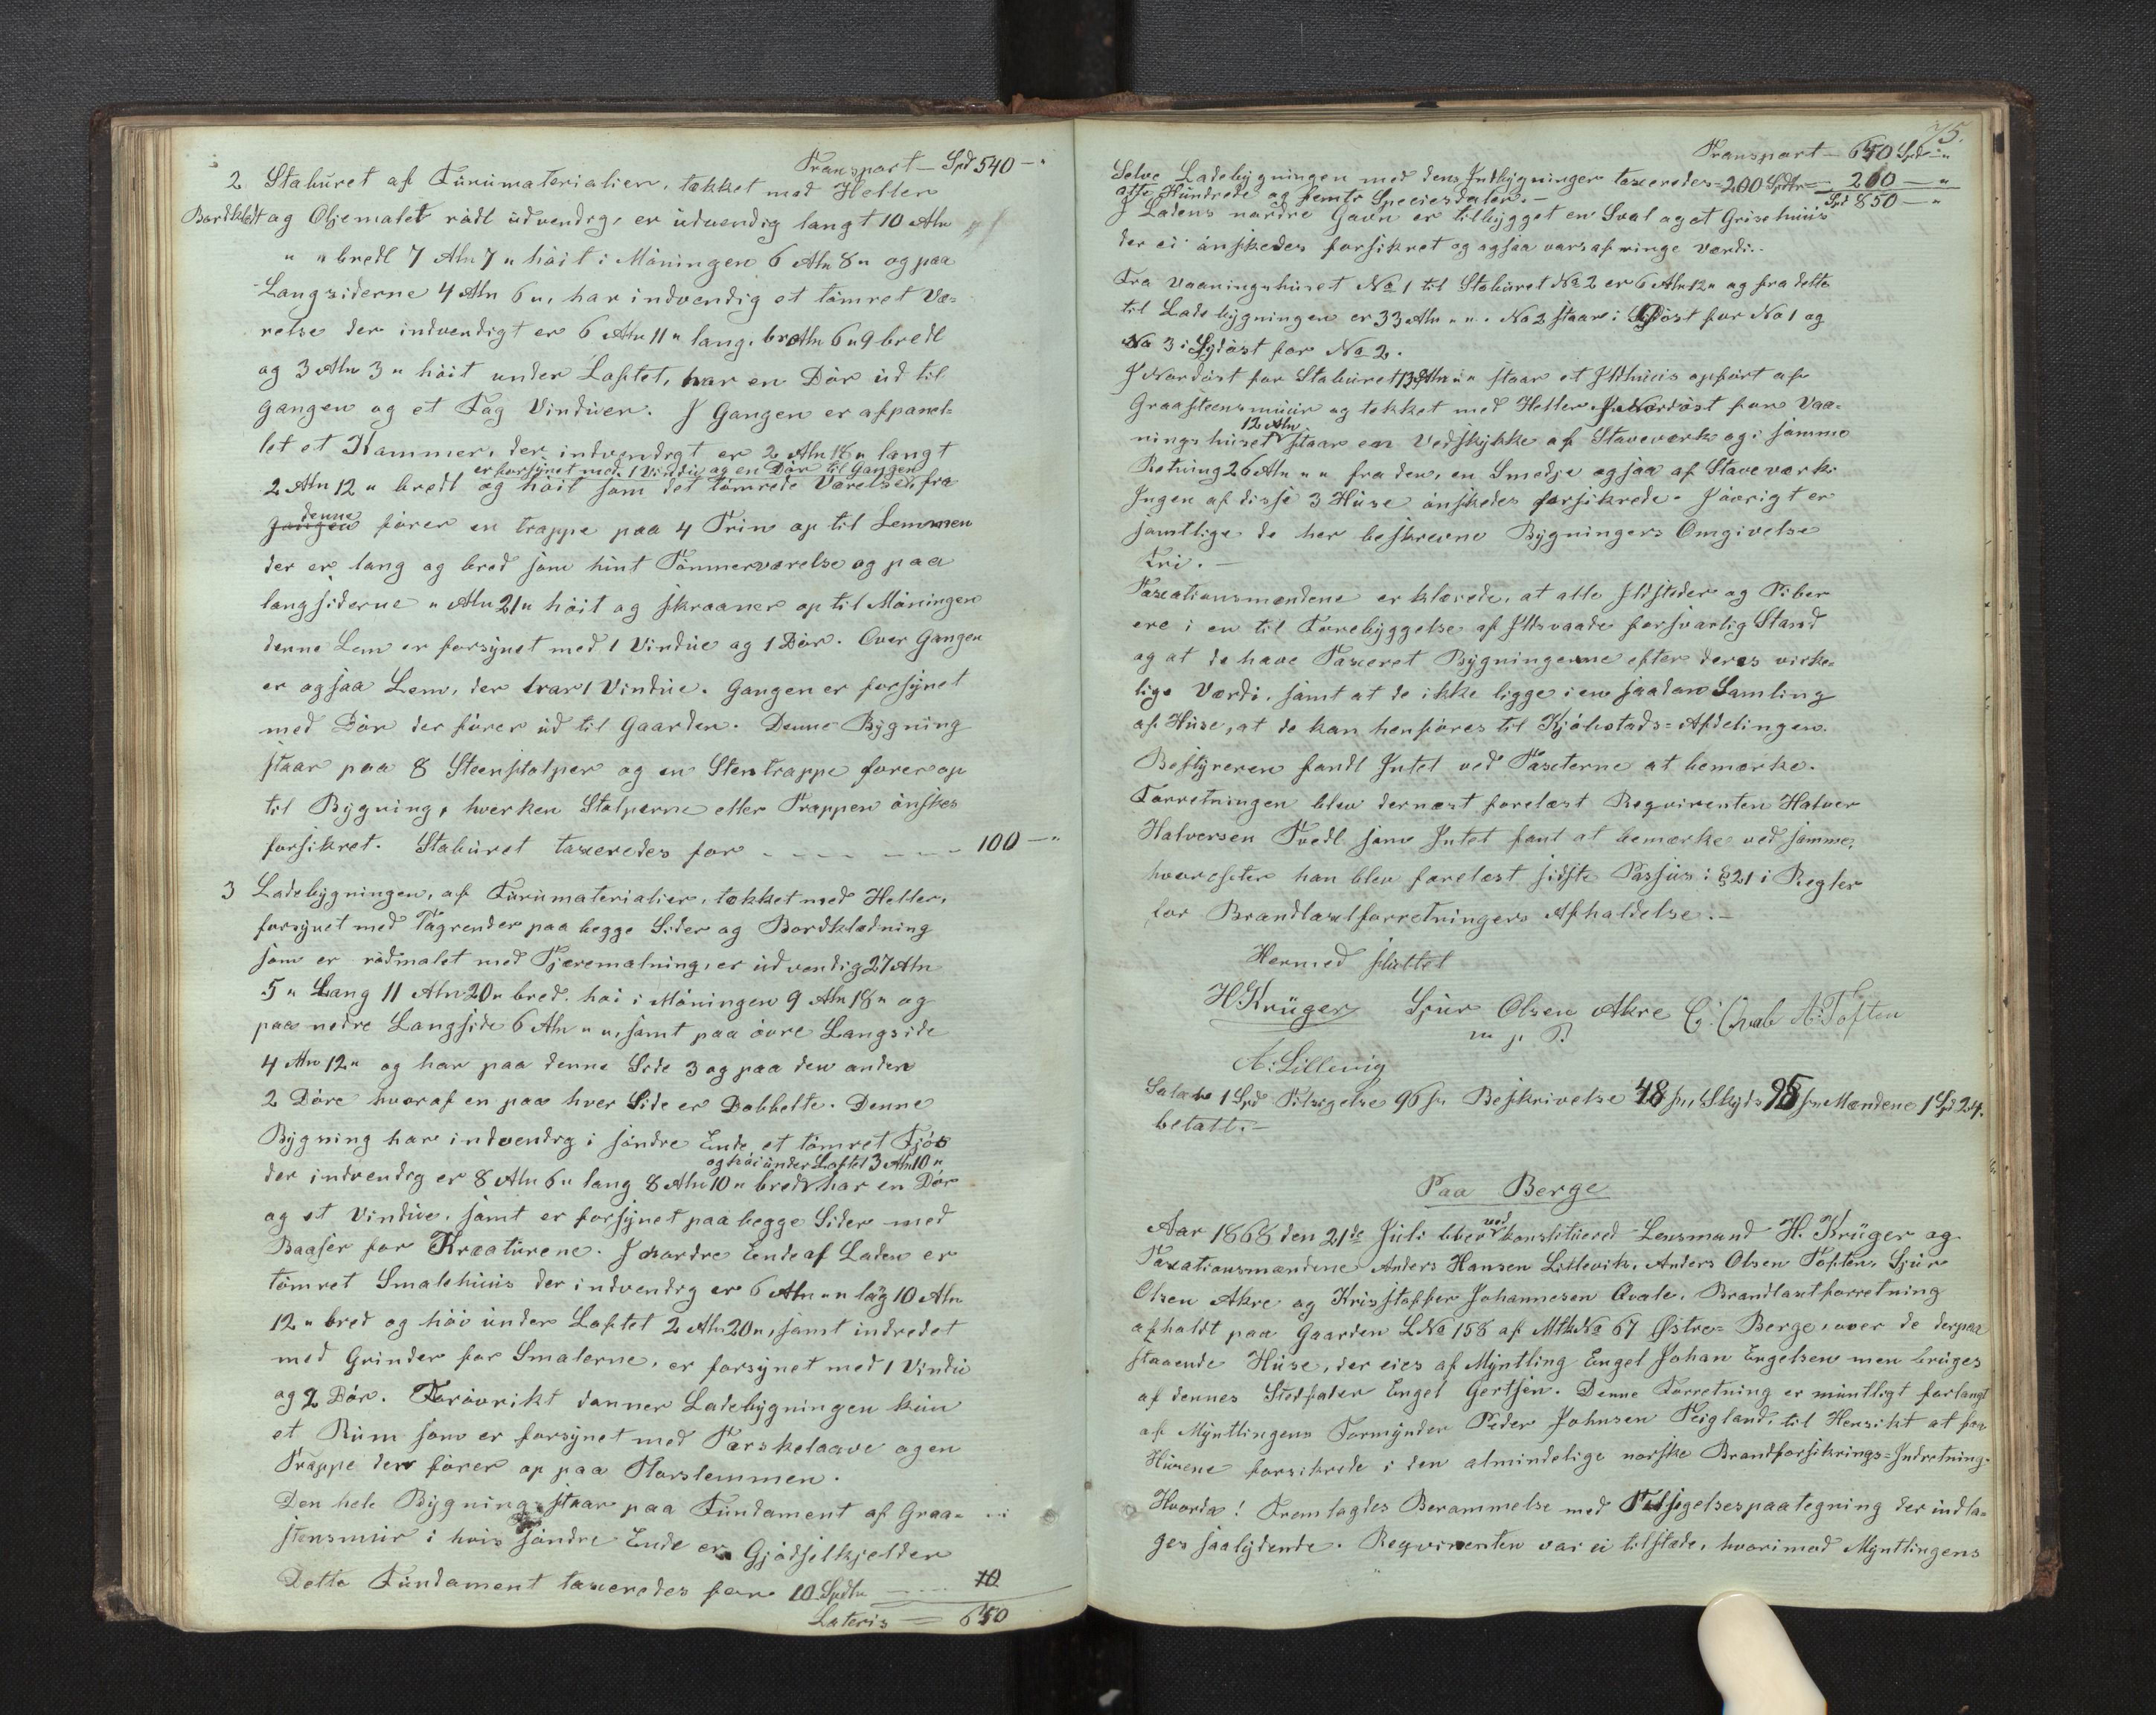 Transport - Spd 540 - "
2 Stabüret af Fürümaterialier, tækket med Heller
Bordklædt og Oljemalet rödt üdvendig, er üdvendig langt 10 Aln
" " bredt 7 Aln 7 " höit i Möningen 6 Aln 8 " og paa
Langsiderne 4 Aln 6 ", har indvendig et tömret Væ-
relse der indvendigt er 6 Aln 11 " lang, Aln 6 " 9 bredt
og 3 Aln 3 " höit under Loftet, har en Dör üd til
Gangen og et Fag Vindüer. I Gangen er afpanel-
let et Kammer, der indvendigt er 2 Aln 18 " langt
er forsynet med 1 Vindü og en Dör til Gangen
2 Aln 12 " bredt og höit som det tömrede Værelse, fra
denne
Gangen förer en trappe paa 4 Trin op til Lemmen
der er lang og bred som hint Tömmerværelse og paa
langsiderne " Aln 21 " höit og skraaner op til Möningen
denne Lem er forsynet med 1 Vindüe og 1 Dör. Over Gangen
er ogsaa Lem, der har 1 Vindüe. Gangen er forsynet
med Dör der förer üd til Gaarden. Denne Bygning
staar paa 8 Steenstolper og en Stentrappe förer op
til Bygning, hverken Stolperne eller Trappen önskes
forsikret. Stabüret taxeredes for - - - - - 100 - "
3 Ladebygningen, af Fürümaterialier, tækket med Heller,
forsynet med Tagrender paa begge Sider og Bordklædning
som er rödmalet med Tjæremalning, er üdvendig 27 Aln
5 " Lang 11 Aln 20 " bred. höi i Möningen 9 Aln 18 " og
paa nedre Langside 6 Aln " ", samt paa övre Langside
4 Aln 12 " og har paa denne Side 3 og paa den anden
2 Döre hvoraf en paa hver Side er Dobbelte. Denne
Bygning har indvendig i söndre Ende et tömret Fjös
og höi ünder Loftet 3 Aln 10 "
der indvendig er 8 Aln 6 " lang 8 Aln 10 " bredt har en Dör
og et Vindüe, samt er forsynet paa begge Sider med
Baaser for Kreatürene. I nordre Ende af Laden er
tömret Smalehuus der indvendig er 6 Aln " " lag 10 Aln
12 " bred og höi ünder Loftet 2 Aln 20 ", samt indredet
med Grinder for Smalerne, er forsynet med 1 Vindü
og 2 Dör. Forövrikt danner Ladebygningen kün
et Rüm som er forsynet med Tærskelaave og en
Trappe der förer op paa Storslemmen.
Den hele Bygning staar paa Fündament af Graa-
stensmür i hvis söndre Ende er Gjödselkjelder
Dette Fündament taxeredes for 10 Spdlr - - - 10
Lateris = 650
75.
Transport - 650 Spd - "
Selve Ladebygningen med dens Indbygninger taxeredes = 200 Spdlr = 200 - "
otte Hündrede og femti Speciesdaler. - Spd 850 - "
I Ladens nordre Gavn er tilbygget en Sval og et Grisehüüs
der ei önskedes forsikret og ogsaa var af ringe Værdi.
Fra Vaaningshüset No 1 til Stabüret No 2 er 6 Aln 12 " og fra dette
til Ladebygningen er 33 Aln " ". No 2 staar i Sydöst for No 1 og
No 3 i Sydöst for No 2.
I Nordöst for Stabüret 13 Aln " " staar et Ildhüüs opfört af
Graasteensmüür og tekket med Heller. I Nordöst for Vaa-
12 Aln
ningshüset staar en Vedskykke af Staveværk og i samme
Retning 26 Aln " " fra den, en Smedje ogsaa af Staveværk.
Ingen af disse 3 Hüse önskedes forsikrede. Iövrigt er
samtlige de her beskrevne Bygningers Omgivelse
Fri. -
Taxationsmændene erklærede, at alle Ildsteder og Piber
ere i en til Forebyggelse af Ildsvaade forsvarlig Stand
og at de have Taxeret Bygningerne efter deres virke-
lige Værdi, samt at de ikke ligge i en saadan Samling
af Hüse, at de kan henföres til Kjöbstads-Afdelingen.
Bestyreren fandt Intet ved Taxterne at bemærke.
Forretningen blev dernæst forelæst Reqvirenten Halvor
Halversen Tvedt som Intet fant at bemærke ved samme,
hvorefter han blev forelæst sidste Passus i § 21 i Regler
for Brandtaxtforretningers Afholdelse. -
Hermed slüttet
H. Krüger Sjür Olsen Akre C. Qvale A. Toften
m p. P.
A. Lillevig
Salair 1 Spd Tilsigelse 96 s, Beskrivelse 48 s, Skyds 95 s Mændene 1 Spd 24.
betalt. -
Paa Berge
ved
Aar 1868 den 21de Juli blev konstitüered Lensmand H. Krüger og
Taxationsmændene Anders Hansen Lillevik, Anders Olsen Toften, Sjür
Olsen Akre og Kristoffer Johannesen Qvale, Brandtaxtforretning
afholdt paa Gaarden LNo 158 af MtkNo 67 Østre-Berge, over de derpaa
staaende Hüse, der eies af Myntling Engel Johan Engelsen men brüges
af dennes Stedfader Engel Gertsen. Denne Forretning er müntligt forlangt
af Myntlingens Formynder Peder Johnsen Teigland, til Hensikt at faa
Hüsene forsikrede i den almindelige norske Brandforsikrings-Indretning.
Hvorda! Fremlagdes Berammelse med Tilsigelsespaategning der indta-
ges saalydende. Reqvirenten var ei tilstæde, hvorimod Myntlingens